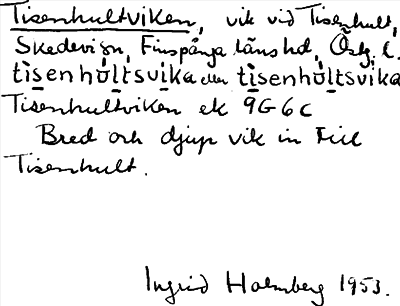 Tisenhultviken, vik vid Tisenhult,
Skedevi sn, Finspånga läns hd, Östg. l.
tìsenhòltsvika eller tìsenhòltsvika
Tisenhultviken ek 9G6c
Bred och djup vik in till
Tisenhult.
Ingrid Holmberg 1953.